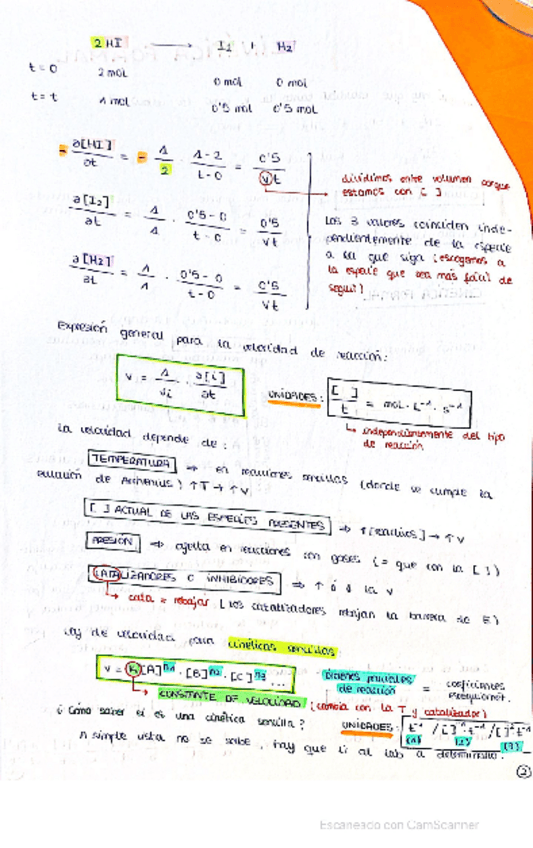 2 HI ⟶ I₂ + H₂
t = 0 2 mol 0 mol 0 mol
t = t 1 mol 0'5 mol 0'5 mol
- ∂[HI]/∂t = - 1/2 · 1-2/t-0 = 0'5/Vt
dividimos entre volumen porque estamos con [ ]
∂[I₂]/∂t = 1/1 · 0'5-0/t-0 = 0'5/Vt
Los 3 valores coinciden inde-
pendientemente de la especie
a la que siga (escogemos a
la especie que sea más fácil de
seguir)
∂[H₂]/∂t = 1/1 · 0'5-0/t-0 = 0'5/Vt
Expresión general para la velocidad de reacción:
v = 1/νi · ∂[i]/∂t
UNIDADES: [ ]/t = mol · L⁻¹ · s⁻¹
↳ independientemente del tipo
de reacción
La velocidad depende de:
TEMPERATURA ⇒ en reacciones sencillas (donde se cumple la
ecuación de Arrhenius) ↑T → ↑v
[ ] ACTUAL DE LAS ESPECIES PRESENTES ⇒ ↑[reactivos] → ↑v
PRESIÓN ⇒ afecta en reacciones con gases (= que con la [ ])
CATALIZADORES O INHIBIDORES ⇒ ↑ ó ↓ la v
↳ cata = rebajar (los catalizadores rebajan la barrera de E)
Ley de velocidad para cinéticas sencillas:
v = k [A]ⁿ¹ · [B]ⁿ² · [C]ⁿ³ ...
órdenes parciales de reacción = coeficientes estequiomét.
↳ CONSTANTE DE VELOCIDAD (cambia con la T y catalizador)
¿Cómo saber si es una cinética sencilla?
UNIDADES: t⁻¹ / [ ]⁻¹ t⁻¹ / [ ]⁻² t⁻¹
(1) (2) (3)
A simple vista no se sabe, hay que ir al lab a determinarlo.
2
Escaneado con CamScanner